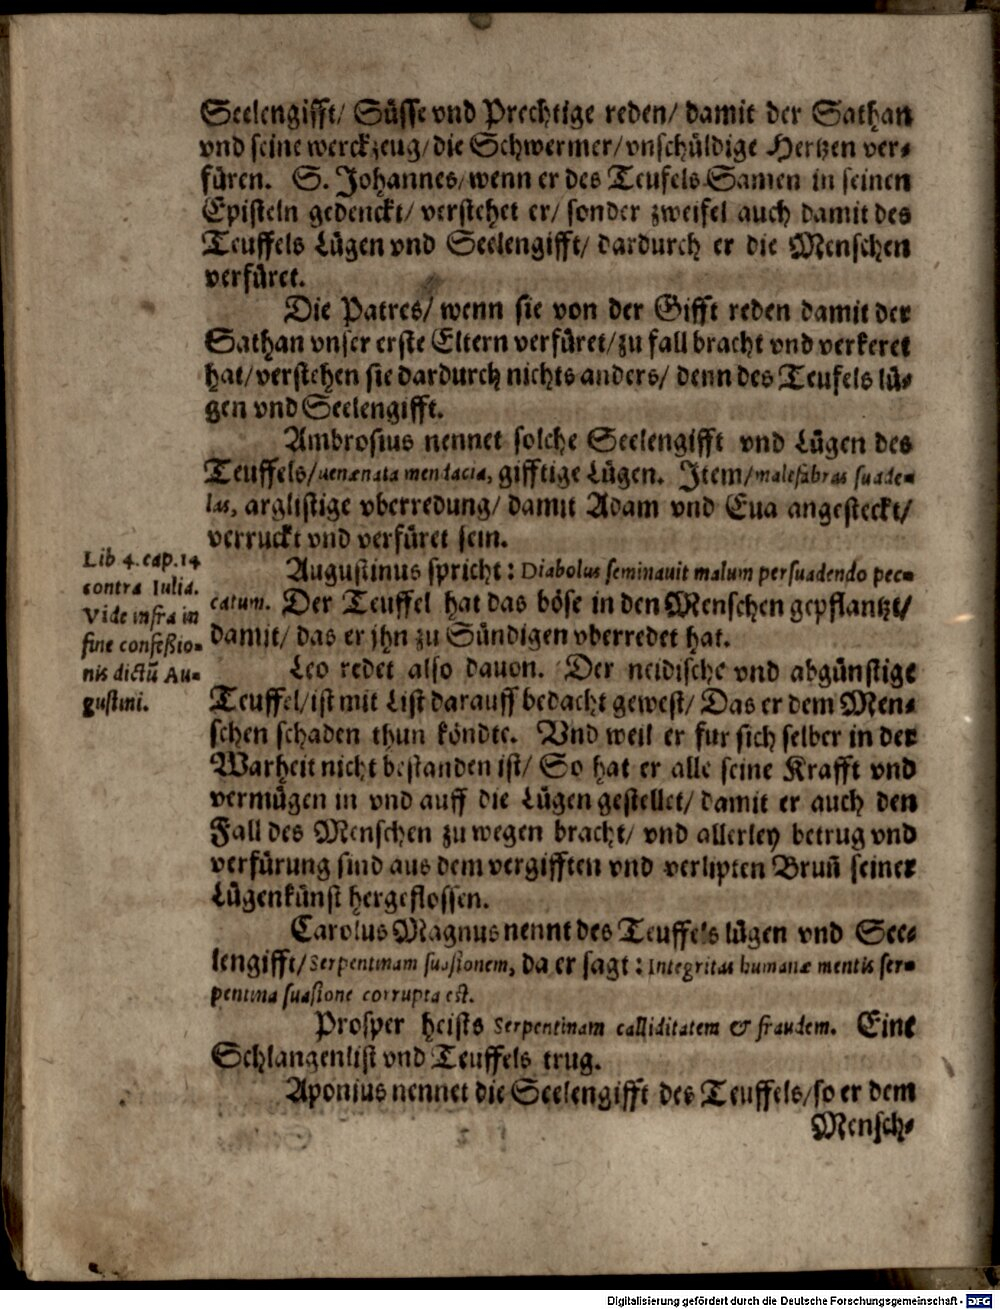 Seelengifft/ Süsse vnd Prechtige reden/ damit der Sathan
vnd seine werckzeug/ die Schwermer/ vnschüldige Hertzen ver⸗
füren. S. Johannes/ wenn er des Teufels Samen in seinen
Episteln gedenckt/ verstehet er/ sonder zweifel auch damit des
Teuffels Lügen vnd Seelengifft/ dardurch er die Menschen
verfüret.
Die Patres/ wenn sie von der Gifft reden damit der
Sathan vnser erste Eltern verfüret/ zu fall bracht vnd verkeret
hat/ verstehen sie dardurch nichts anders/ denn des Teufels lü⸗
gen vnd Seelengifft.
Ambrosius nennet solche Seelengifft vnd Lügen des
Teuffels/ uenænata mendacia, gifftige Lügen. Item/ malesabras suade-
las, arglistige vberredung/ damit Adam vnd Eua angesteckt/
verruckt vnd verfüret sein.
Augustinus spricht: Diabolus seminauit malum persuadendo pec-
catum. Der Teuffel hat das böse in den Menschen gepflantzt/
damit/ das er jhn zu Sündigen vberredet hat.
Lib 4. cap. 14
contra Iulia.
Vide infra in
fine confeßio-
nis dictũ Au-
gustini.
Leo redet also dauon. Der neidische vnd abgünstige
Teuffel/ ist mit List darauff bedacht gewest/ Das er dem Men⸗
schen schaden thun köndte. Vnd weil er fur sich selber in der
Warheit nicht bestanden ist/ So hat er alle seine Krafft vnd
vermügen in vnd auff die Lügen gestellet/ damit er auch den
Fall des Menschen zu wegen bracht/ vnd allerley betrug vnd
verfürung sind aus dem vergifften vnd verlipten Brun̄ seiner
Lügenkünst hergeflossen.
Carolus Magnus nennt des Teuffels lügen vnd See⸗
lengifft/ Serpentinam suasionem, da er sagt: Integritas humanæ mentis ser-
pentina suasione corrupta est.
Prosper heists Serpentinam calliditatem & fraudem. Eine
Schlangenlist vnd Teuffels trug.
Aponius nennet die Seelengifft des Teuffels/ so er dem
Mensch⸗
Digitalisierung gefördert durch die Deutsche Forschungsgemeinschaft - DFG